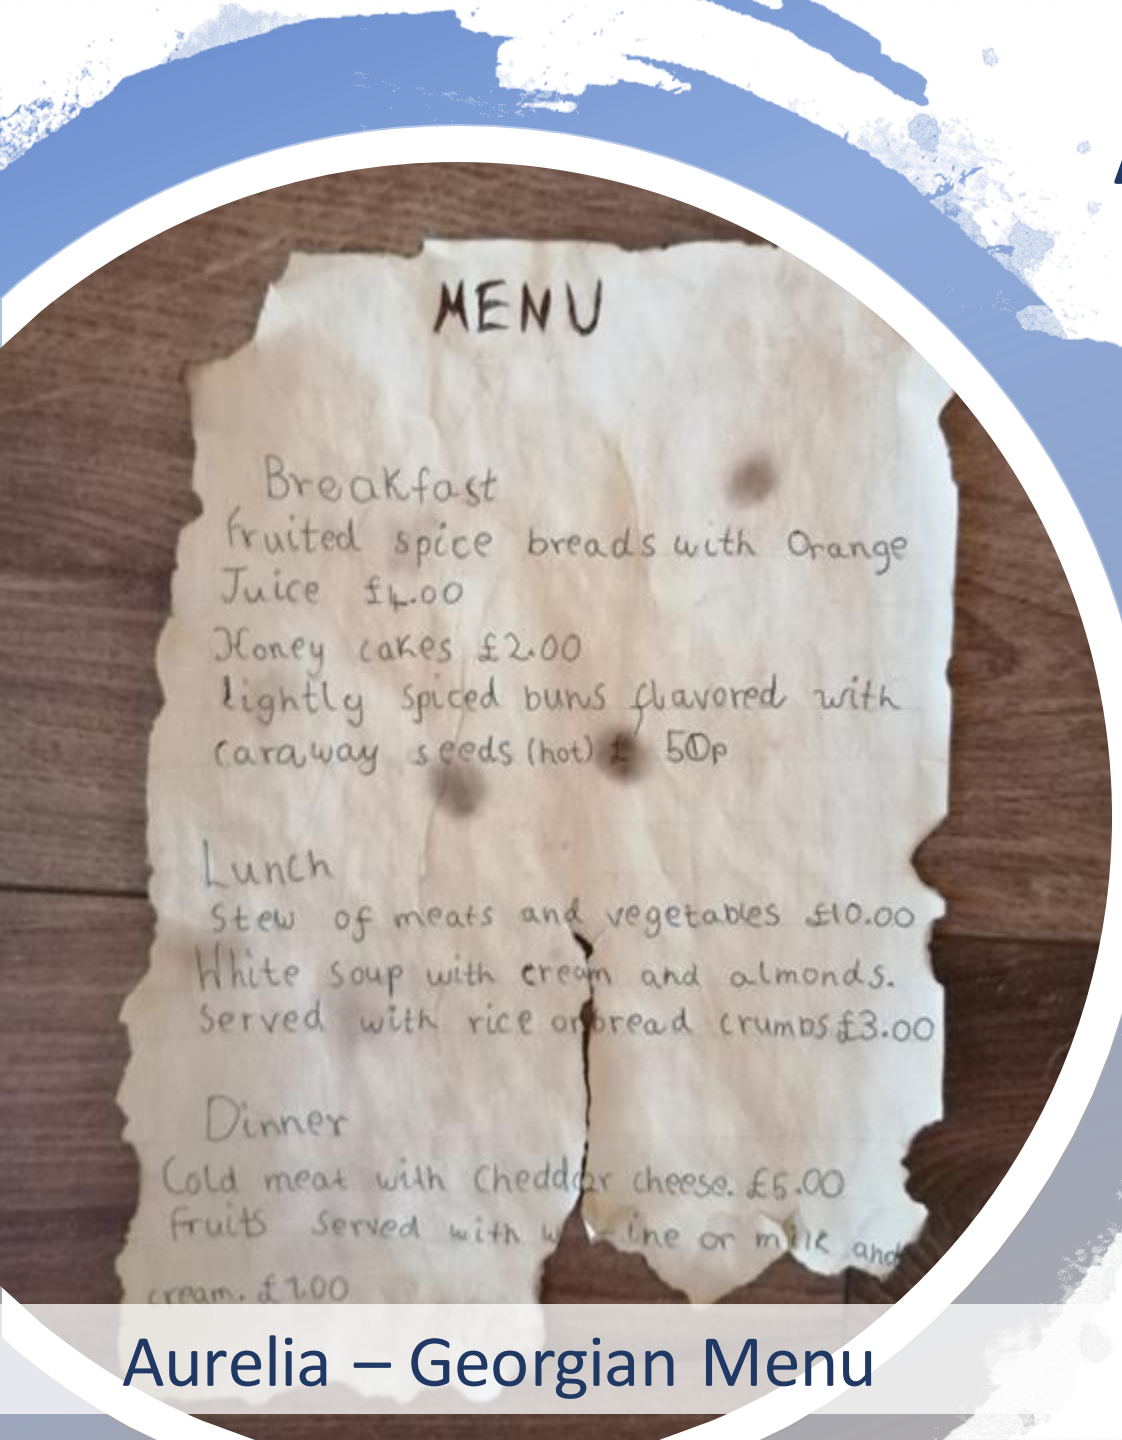 MENU
Breakfast
fruited spice breads with Orange
Juice £4.00
Honey cakes £2.00
lightly spiced buns flavored with
caraway seeds (hot) £ 50p
Lunch
Stew of meats and vegetables £10.00
White soup with cream and almonds.
Served with rice or bread crumbs £3.00
Dinner
Cold meat with Cheddar cheese. £5.00
fruits served with w-ine or milk and
cream. £1.00
Aurelia – Georgian Menu